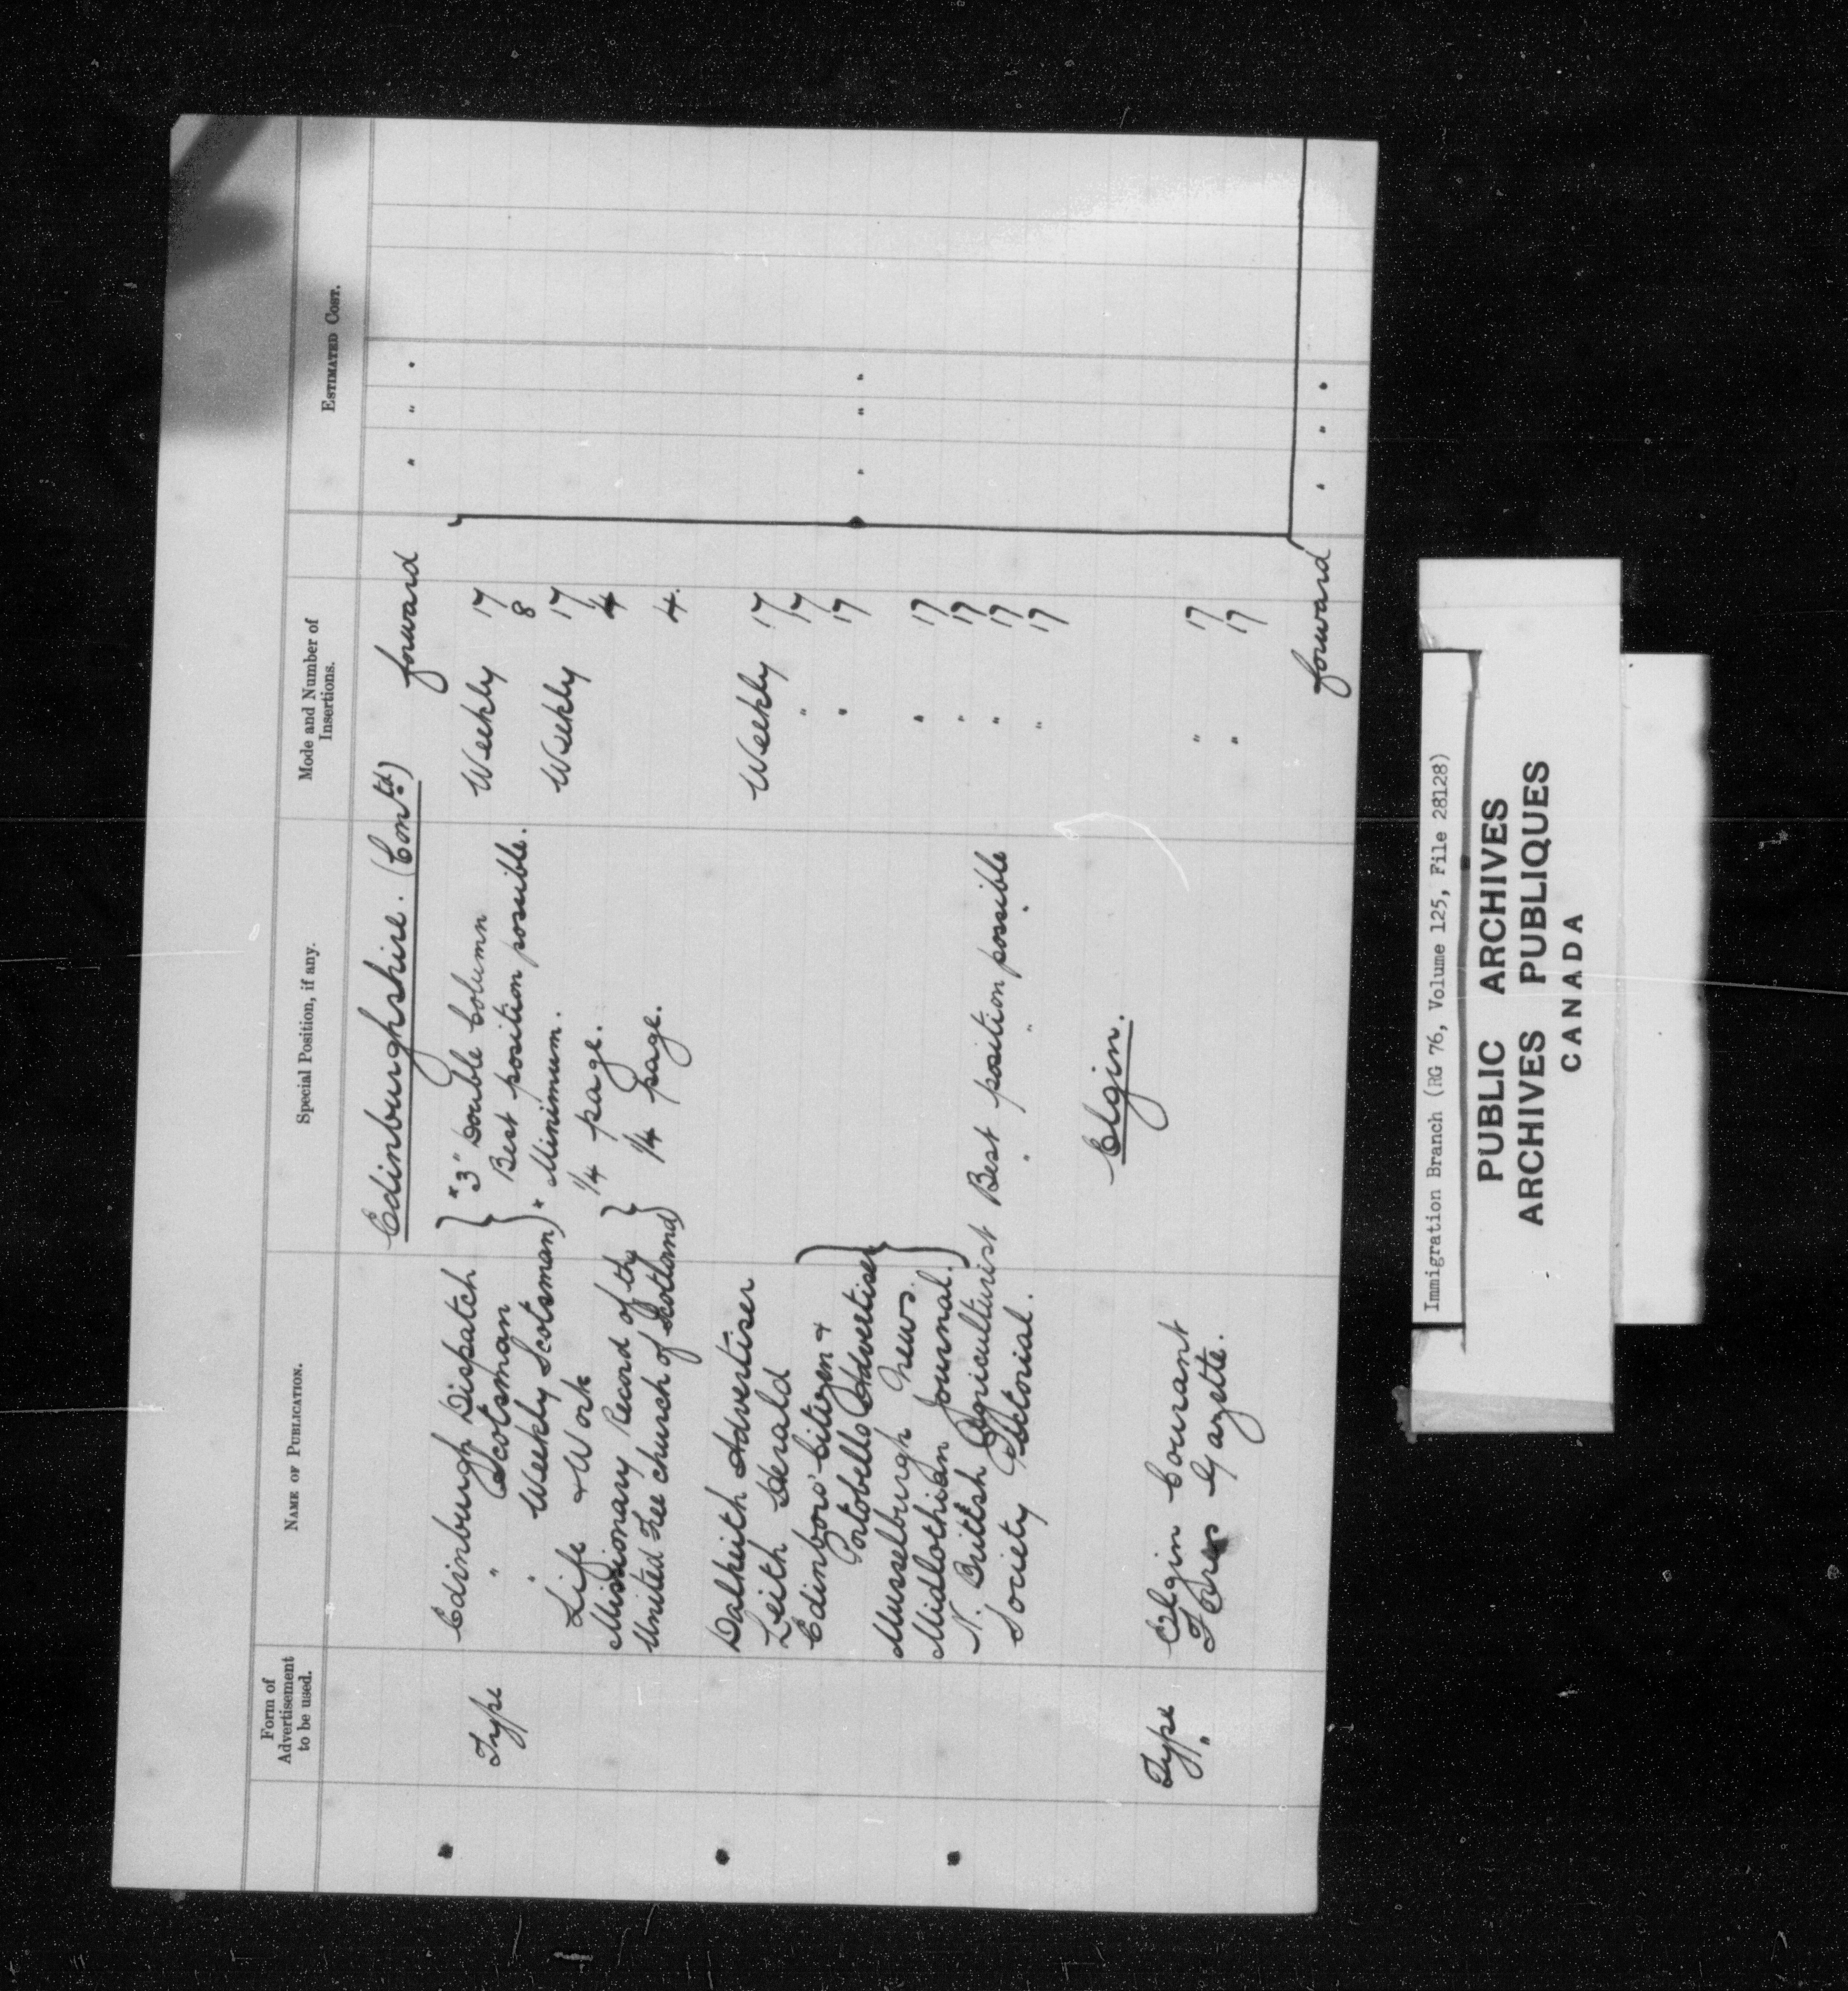 Form of Advertisement to be used. NAME OF PUBLICATION. Special Position, if any. Mode and Number of Insertions. ESTIMATED COST.
Edinburghshire. (Contd) forward " " "
Type Edinburgh Dispatch } *3" Double Column Weekly 17
" Scotsman } Best position possible. 8
" Weekly Scotsman) * Minimum. Weekly 17
Life & Work } 1/4 page. 4
Missionary Record of the }
United Free Church of Scotland) 1/4 page. 4.
Dalkeith Advertiser Weekly 17
Leith Herald " 17
Edinboro' Citizen & } " 17
Portobello Advertiser }
Musselburgh News. } " 17
Midlothian Journal. } " 17
N. British Agriculturist Best position possible " 17
Society Pictorial. " " " " 17
Elgin.
Type Elgin Courant " 17
" Forres Gazette. " 17
forward " " "
Immigration Branch (RG 76, Volume 125, File 28128)
PUBLIC ARCHIVES
ARCHIVES PUBLIQUES
CANADA